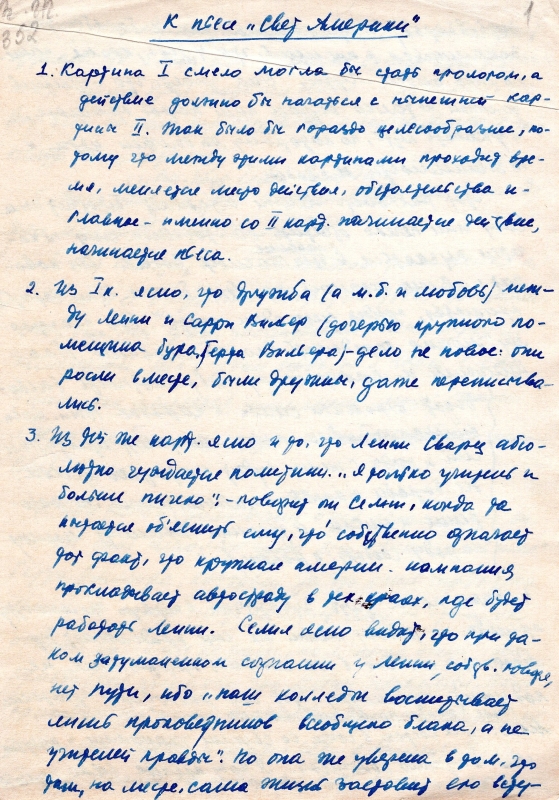 1
352
К пьесе „Свет Америки"
1. Картина I смело могла бы стать прологом, а
действие должно бы начаться с нынешней кар-
тины II. Так было бы гораздо целесообразнее, по-
тому что между этими картинами проходит вре-
мя, меняется место действия, обстоятельства и-
главное - именно со II карт. начинается действие,
начинается пьеса.
2. Из I к. ясно, что дружба (а м.б. и любовь) меж-
ду Ленни и Сарри Вильер (дочерью крупного по-
мещика бура, Герра Вильера) - дело не новое: они
росли вместе, были дружны, даже переписыва-
лись.
3. Из этой же карт. ясно и то, что Ленни Сварц абсо-
лютно чуждается политики. „Я только учитель и
больше ничего", - говорит он Селии, когда та
пытается об'яснить ему, что собственно означает
тот факт, что крупная америк. кампания
прокладывает автостраду в тех краях, где будет
работать Ленни. Селия ясно видит, что при та-
ком затуманенном сознании у Ленни, собств. говоря,
нет пути, ибо „наш колледж воспитывает
лишь проповедников всеобщего блага, а не
учителей правды". Но она же уверена в том, что
там, на месте, сама жизнь заставит его